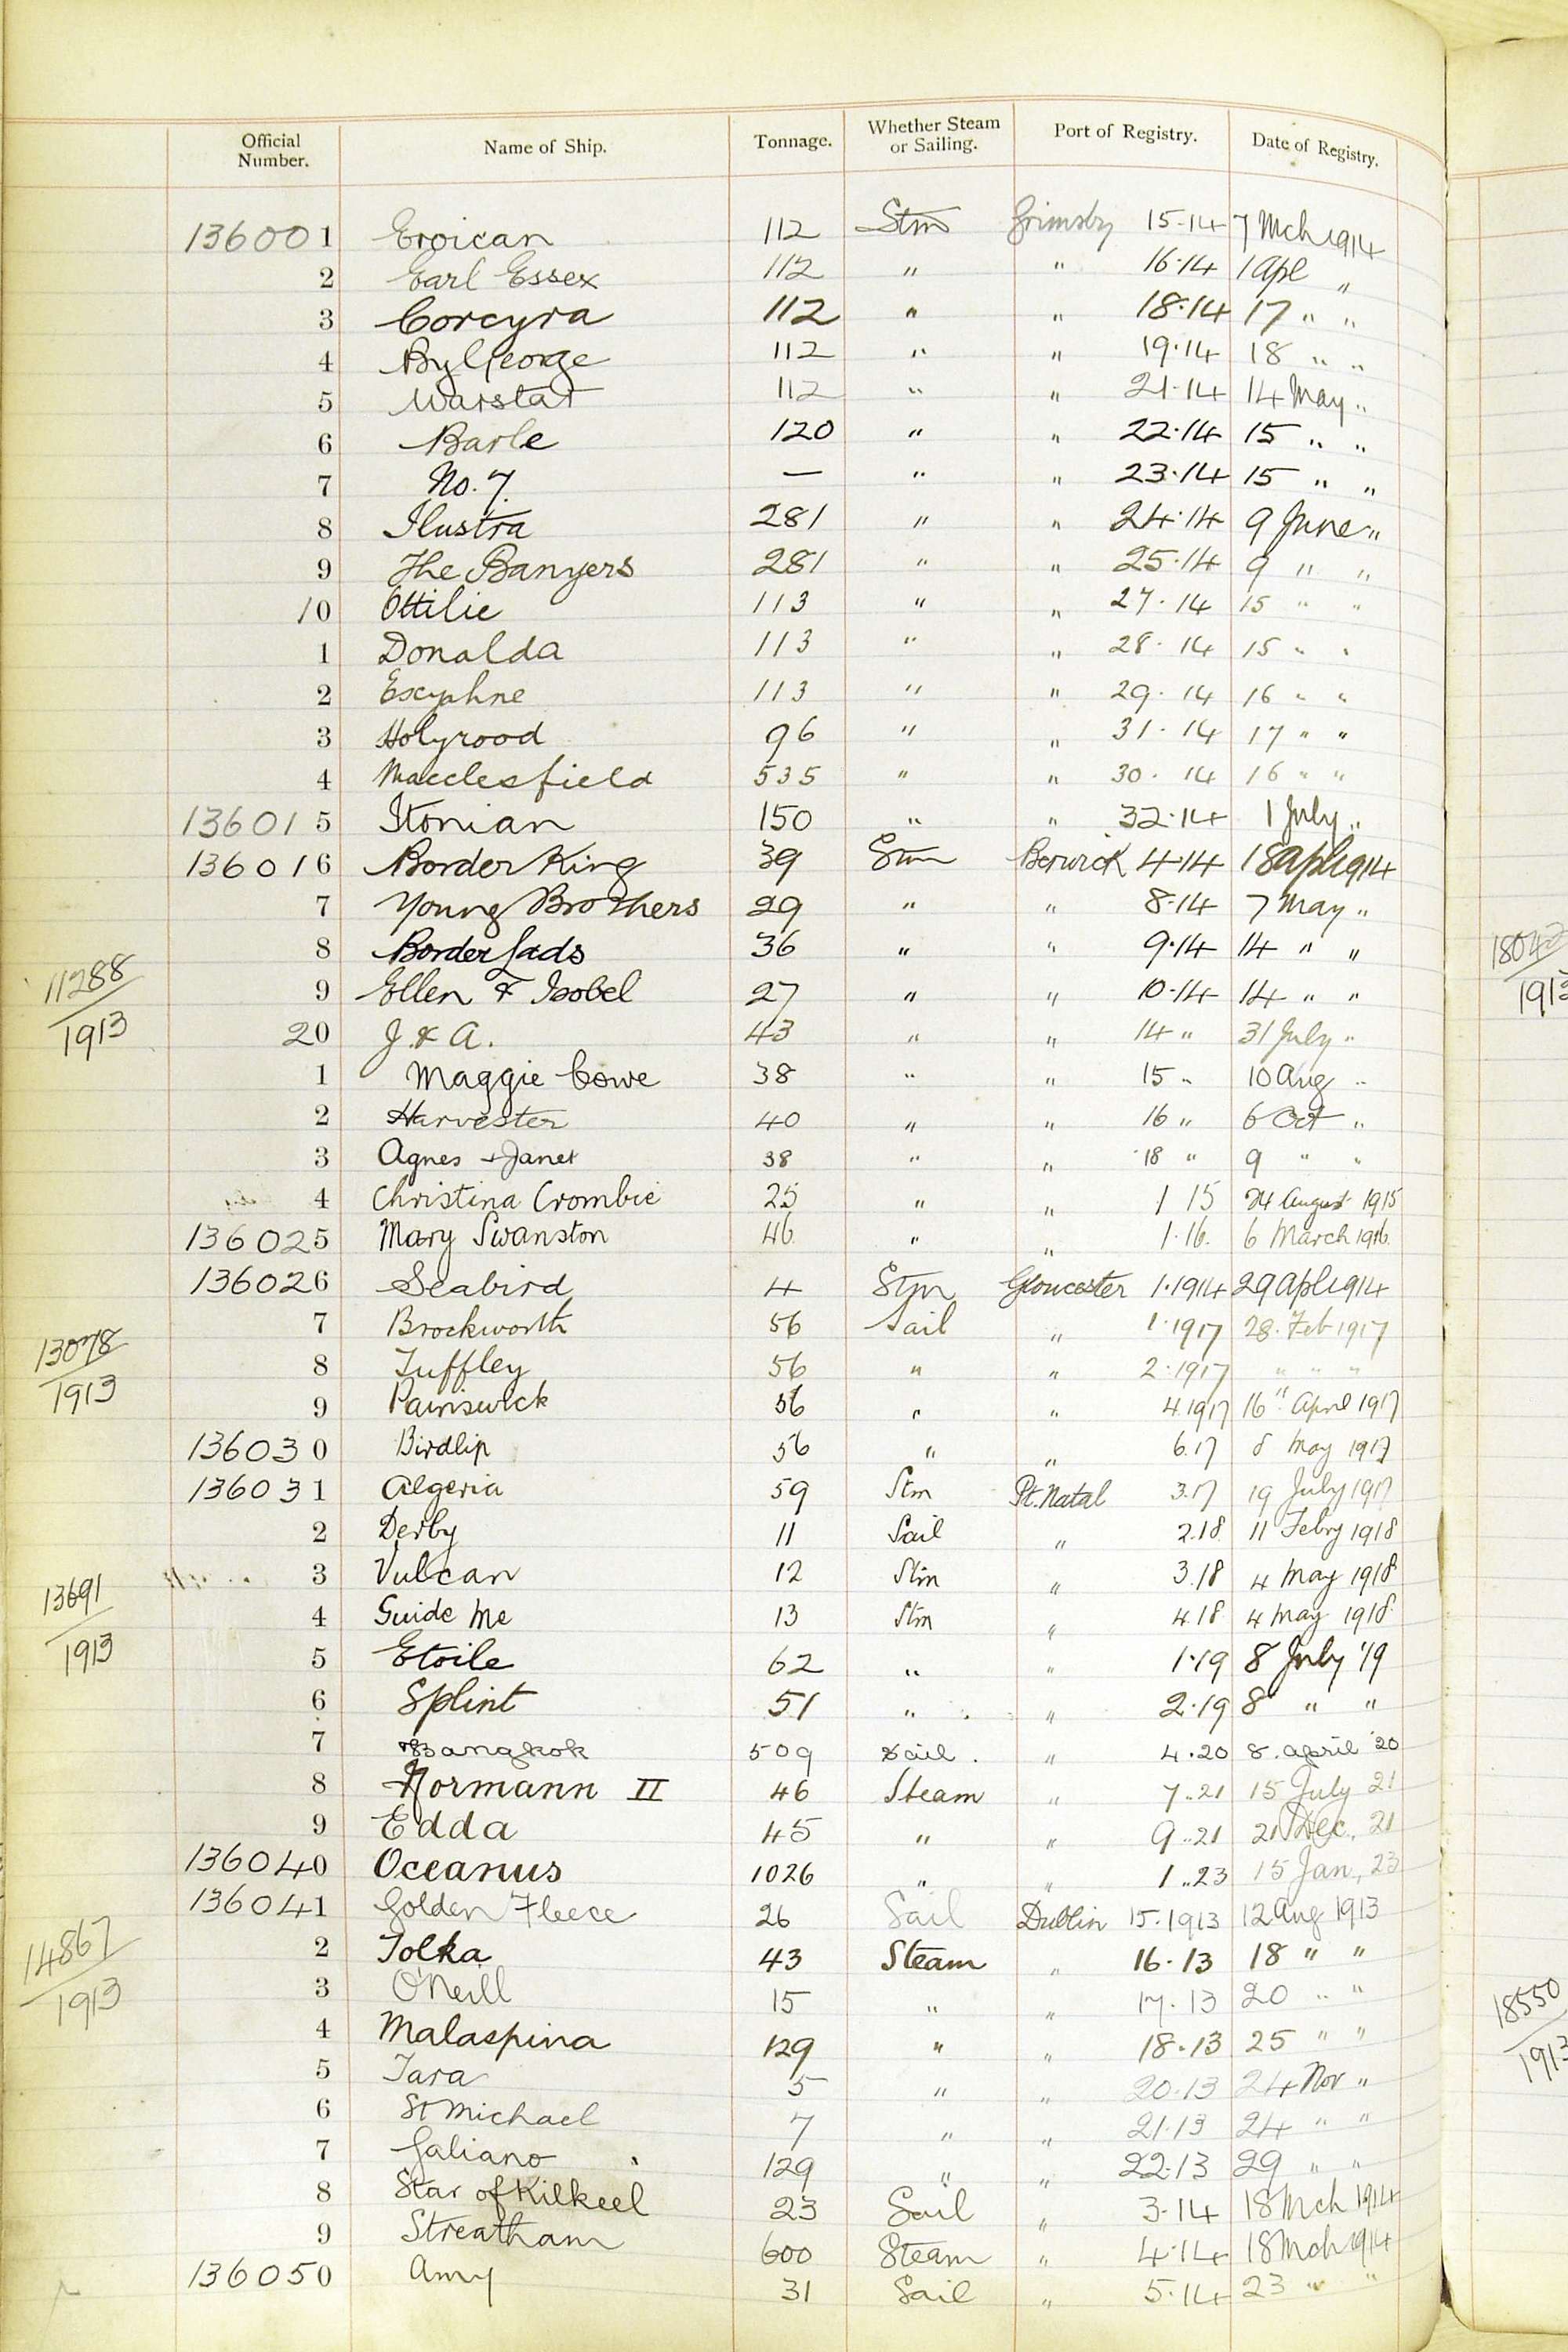 Official Number. Name of Ship. Tonnage. Whether Steam or Sailing. Port of Registry. Date of Registry.
136001 Eroican 112 Stm Grimsby 15·14 7 Mch 1914
2 Earl Essex 112 " " 16·14 1 Apl "
3 Corcyra 112 " " 18·14 17 " "
4 By George 112 " " 19·14 18 " "
5 Warstar 112 " " 21·14 14 May "
6 Barle 120 " " 22·14 15 " "
7 No. 7. — " " 23·14 15 " "
8 Ilustra 281 " " 24·14 9 June "
9 The Banyers 281 " " 25·14 9 " "
10 Ottilie 113 " " 27·14 15 " "
1 Donalda 113 " " 28·14 15 " "
2 113 " " 29·14 16 " "
3 Holyrood 96 " " 31·14 17 " "
4 Macclesfield 535 " " 30·14 16 " "
136015 Itonian 150 " " 32·14 1 July "
136016 Border King 39 Stm Berwick 4·14 18 Apl 1914
7 Young Brothers 29 " " 8·14 7 May "
8 Border Lads 36 " " 9·14 14 " "
11288/1913 18042/1913
9 Ellen & Isobel 27 " " 10·14 14 " "
20 J. & A. 43 " " 14 " 31 July "
1 Maggie Cowe 38 " " 15 " 10 Aug "
2 Harvester 40 " " 16 " 6 Oct "
3 Agnes & Janet 38 " " 18 " 9 " "
4 Christina Crombie 25 " " 1 15 24 August 1915
136025 Mary Swanston 46 " " 1·16. 6 March 1916.
136026 Seabird 4 Stm Gloucester 1·1914 29 Apl 1914
7 Brockworth 56 Sail " 1·1917 28 Feb 1917
13078/1913
8 Tuffley 56 " " 2·1917 " " "
9 Painswick 56 " " 4.1917 16" April 1917
136030 Birdlip 56 " " 6.17 8 May 1917
136031 Algeria 59 Stm Pt. Natal 3.17 19 July 1917
2 Derby 11 Sail " 2.18. 11 Febry 1918
3 Vulcan 12 Stm " 3.18 4 May 1918
13691/1913
4 Guide Me 13 Stm " 4 18 4 May 1918
5 Etoile 62 " " 1·19 8 July '19
6 Splint 51 " " 2·19 8 " "
7 Bangkok 509 Sail. " 4·20 8. April '20
8 Normann II 46 Steam " 7..21 15 July 21
9 Edda 45 " " 9..21 21 Dec, 21
136040 Oceanus 1026 " " 1..23 15 Jan, 23
136041 Golden Fleece 26 Sail Dublin 15·1913 12 Aug 1913
2 Tolka 43 Steam " 16·13 18 " "
14867/1913
3 O'Neill 15 " " 17·13 20 " "
18550/1913
4 Malaspina 129 " " 18·13 25 " "
5 Tara 5 " " 20·13 24 Nov "
6 St Michael 7 " " 21·13 24 " "
7 Galiano 129 " " 22·13 29 " "
8 Star of Kilkeel 23 Sail " 3·14 18 Mch 1914
9 Streatham 600 Steam " 4·14 18 Mch 1914
136050 Amy 31 Sail " 5·14 23 " "